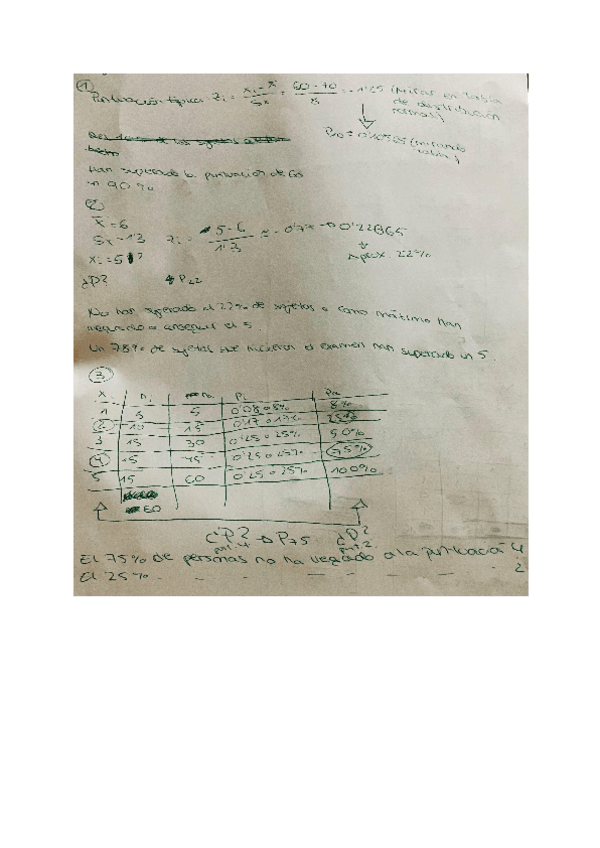 ①
Puntuación típica Zi = xi - x̄ / Sx = 60 - 70 / 8 = -1'25 (mirar en tabla
de distribución
normal)
(mirando
tabla)
Han superado la puntuación de 60
un 90%
②
x̄ = 6
Sx = 1'3 Zi = 5-6 / 1'3 ≈ -0'77 → 0'22065
xi = 5 Aprox. 22%
¿P? → P22
No han superado el 22% de sujetos o como máximo han
llegado a conseguir el 5.
Un 78% de sujetos que hicieron el examen han superado un 5.
③
x ni Pi Pa
1 5 5 0'08 o 8% 8%
2 10 15 0'17 o 17% 25%
3 15 30 0'25 o 25% 50%
4 15 45 0'25 o 25% 75%
5 15 60 0'25 o 25% 100%
60
¿P? → P75 ¿P?
pnt. 4 pnt. 2
El 75% de personas no ha llegado a la puntuación 4
El 25% - - - - - 2